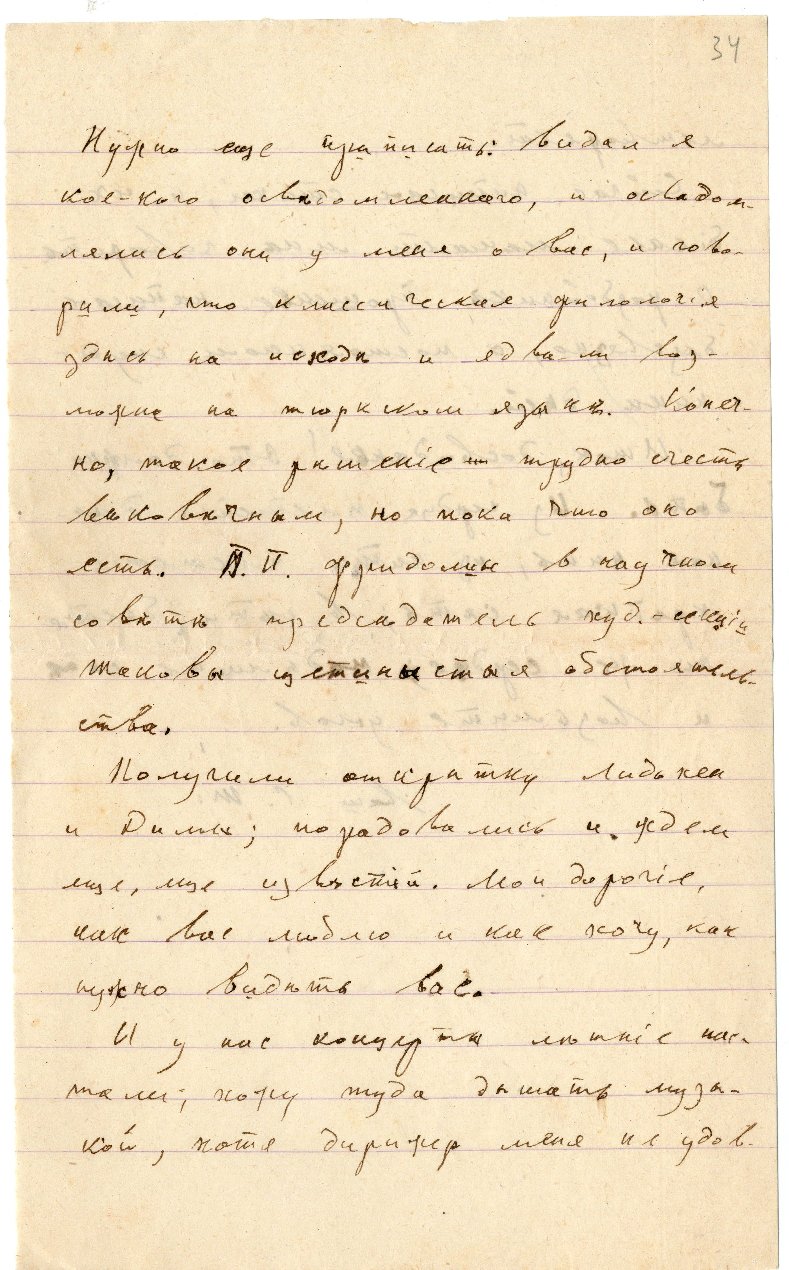 34
Нужно еще приписать: видал я
кое-кого освѣдомленнаго, и освѣдом-
лялись они у меня о вас, и гово-
рили, что классическая филологія
здѣсь на исходѣ и едва-ли воз-
можна на тюркском языкѣ. Конеч-
но, такое рѣшеніе трудно счесть
вѣковѣчным, но пока что оно
есть. П. П. Фридолин в научном
совѣтѣ предсѣдатель худ.-секціи
Таковы обстоятель-
ства.
Получили открытку Лидькеи
и Димы; порадовались и ждем
еще, еще извѣстій. Мои дорогіе,
как вас люблю и как хочу, как
нужно видѣть вас.
И у нас концерты лѣтніе нас-
тали; хожу туда дышать музы-
кой, хотя дирижер меня не удов-